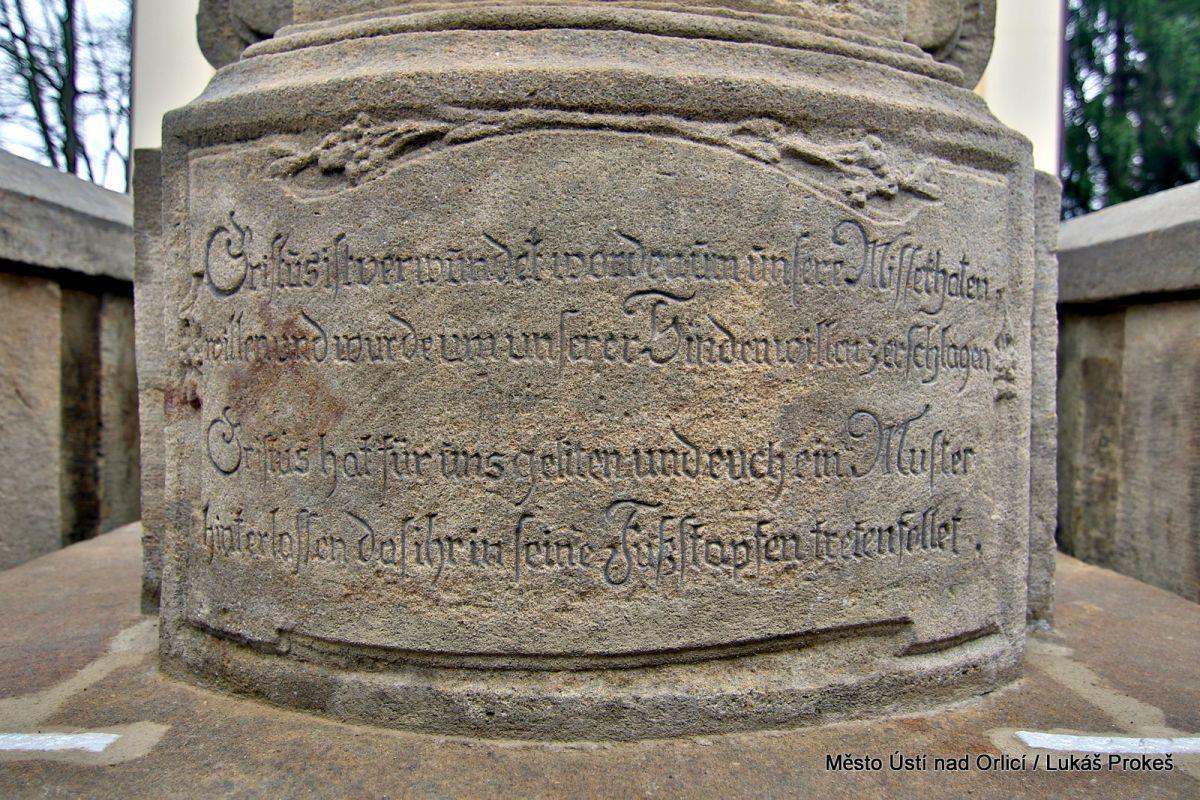 Cristus ist verwundet worden um unsere Missethaten
willen und wurde um unserer Sünden willen zerschlagen
Cristus hat für uns geliten und euch ein Muster
hinterlassen das ihr in seine Fußstapfen treten sollet.
Město Ústí nad Orlicí / Lukáš Prokeš